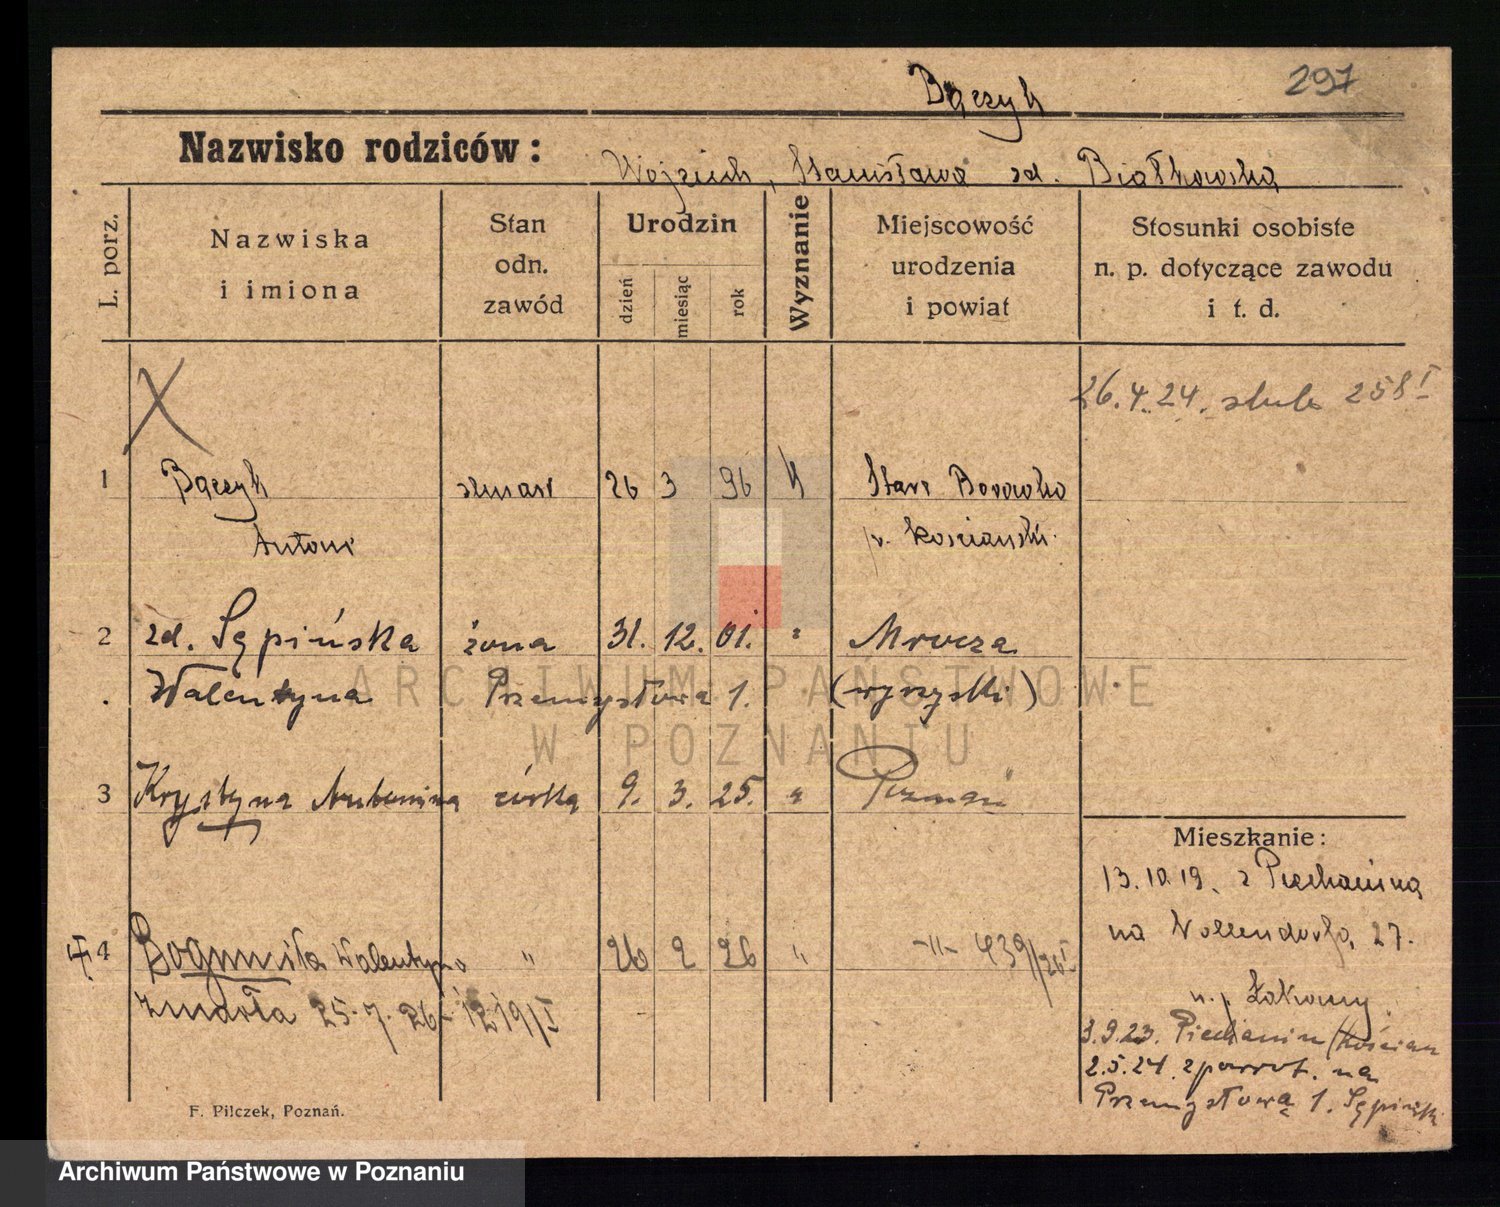 297
Bączyk
Nazwisko rodziców:
Wojciech, Stanisława zd. Białkowska
L. porz.
Nazwiska
i imiona
Stan
odn.
zawód
Urodzin
dzień
miesiąc
rok
Wyznanie
Miejscowość
urodzenia
i powiat
Stosunki osobiste
n. p. dotyczące zawodu
i t. d.
26.4.24. slub 258 I
1 Bączyk 26 3 96 k Stare Borowko
Antoni p. kosciański
2 zd. Sępińska żona 31. 12. 01. " Mrocza
Walentyna Przemysłowa 1. (wyrzyski)
3 Krystyna Antonina córka 9. 3. 25. " Poznań
Mieszkanie:
13.10.19. z Piechanina
na 27.
4 Bogumiła Walentyna " 26 2 26 " -"- 439/26 I
zmarła 25.7.26 - 1219/I
3.9.23. Piechanin /Kościan
2.5.24. zpowrot. na
Przemysłową 1. Sępiński
F. Pilczek, Poznań.
ARCHIWUM PAŃSTWOWE
W POZNANIU
Archiwum Państwowe w Poznaniu